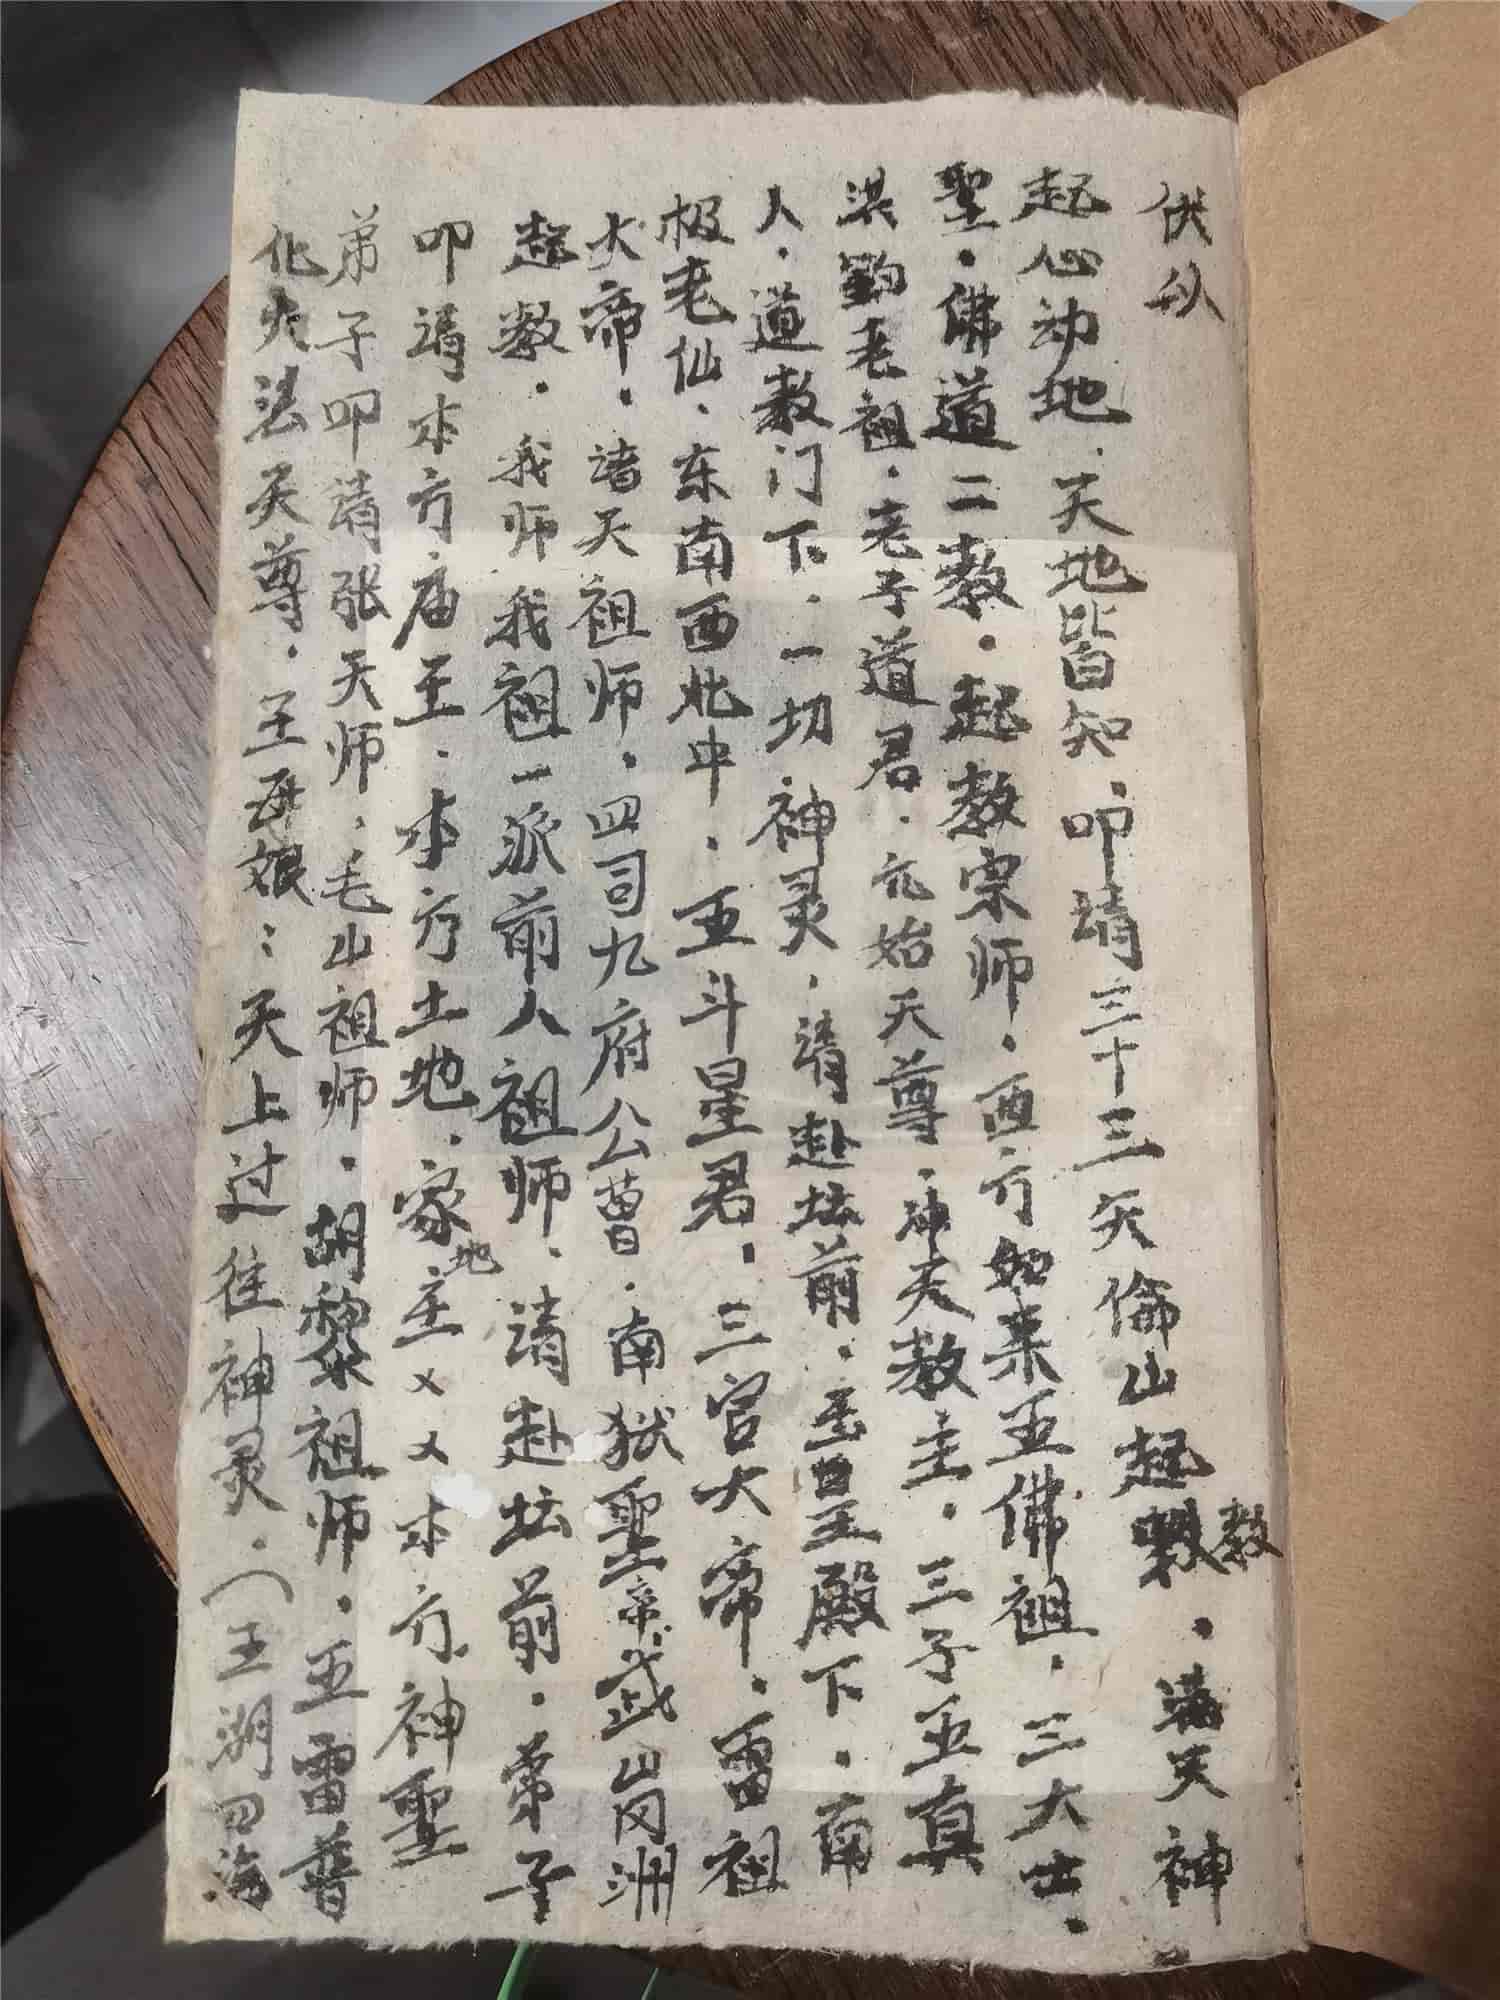 伏以
起心动地．天地皆知．叩请三十三天倫山起教．满天神
聖．佛道二教．起教宗师．西方如来五佛祖．三大士．
洪鈞老祖．老子道君．元始天尊．冲天教主．三子五真
人．道教门下．一切神灵．请赴坛前．玉皇殿下．南
极老仙．东南西北中．五斗星君．三官大帝．雷祖
大帝．诸天祖师．四司九府公曹．南狱聖帝武岗洲
起教．我师我祖一派前人祖师．请赴坛前．弟子
叩请本方庙王．本方土地．家主地××本方神聖
弟子叩请张天师．毛山祖师．胡黎祖师．五雷普
化大法天尊．王母娘：天上过往神灵．（王湖四海